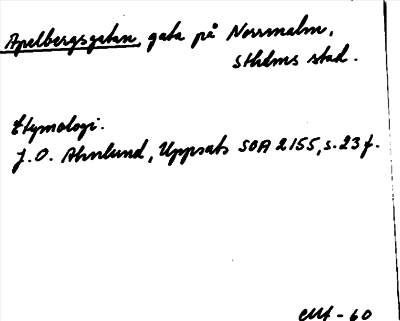 Apelbergsgatan, gata på Norrmalm,
Sthlms stad.
Etymologi.
J. O. Ahnlund, Uppsats SOA 2155, s. 23 f.
-60